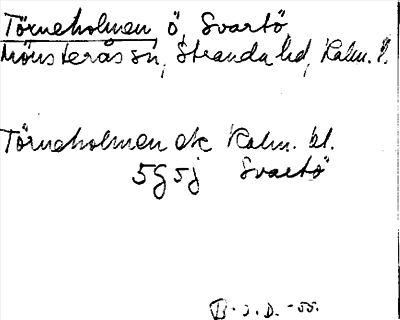 Törneholmen, ö, Svartö,
Mönsterås sn, Stranda hd, Kalm. l.
Törneholmen ek Kalm. bl.
5g5j Svartö
J.D. -55.